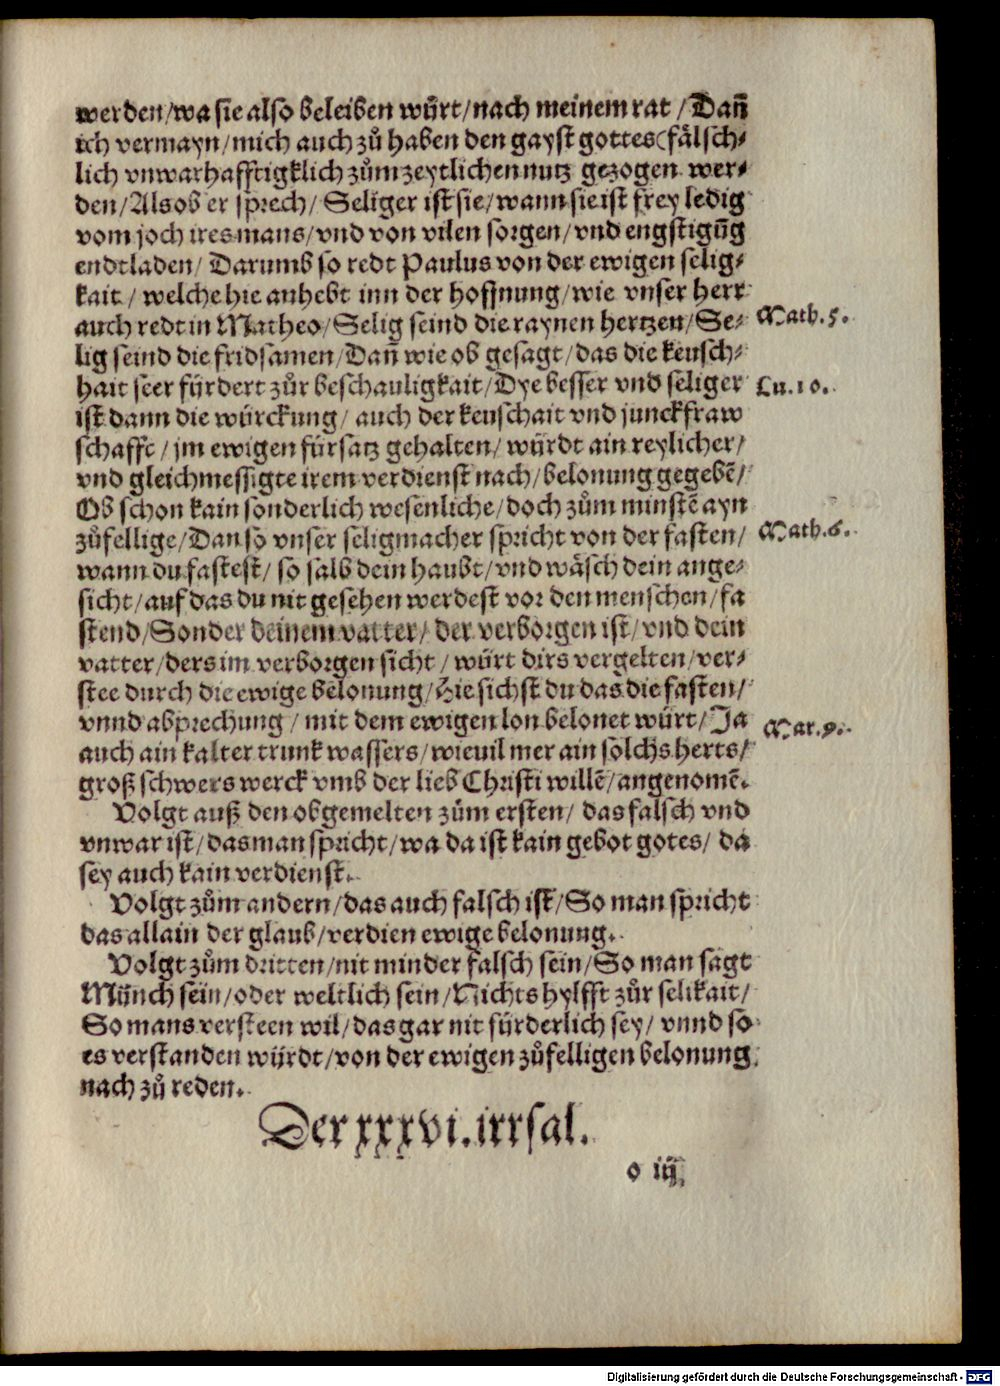 werden/wa sie also beleiben wůrt/nach meinem rat/Dañ
ich vermayn/mich auch zů haben den gayst gottes(fålsch⸗
lich vnwarhafftigklich zům zeytlichen nutz gezogen wer⸗
den/Als ob er sprech/Seliger ist sie/wann sie ist frey ledig
vom joch ires mans/vnd von vilen sorgen/vnd engstigūg
endtladen/Darumb so redt Paulus von der ewigen selig⸗
kait/welche hie anhebt inn der hoffnung/wie vnser herr
auch redt in Matheo/Selig seind die raynen hertzen/Se⸗
Math.5.
lig seind die fridsamen/Dañ wie ob gesagt/das die keusch⸗
hait seer fürdert zůr beschauligkait/Dye besser vnd seliger
Lu.10.
ist dann die würckung/auch der keuschait vnd junckfraw
schafft/jm ewigen fürsatz gehalten/würdt ain reylicher/
vnd gleichmessigte irem verdienst nach/belonung gegebē/
Ob schon kain sonderlich wesenliche/doch zům minstē ayn
zůfellige/Dan so vnser seligmacher spricht von der fasten/
Math.6.
wann du fastest/so salb dein haubt/vnd wåsch dein ange⸗
sicht/auf das du nit gesehen werdest vor den menschen/fa
stend/Sonder deinem vatter/der verborgen ist/vnd dein
vatter/ders im verborgen sicht/würt dirs vergelten/ver⸗
stee durch die ewige belonung/Hie sichst du das die fasten/
vnnd abprechung/mit dem ewigen lon belonet würt/Ja
Mar.9.
auch ain kalter trunk wassers/wieuil mer ain solchs herts/
groß schwers werck vmb der lieb Christi willē/angenomē.
Volgt auß den obgemelten zům ersten/das falsch vnd
vnwar ist/das man spricht/wa da ist kain gebot gotes/da
sey auch kain verdienst.
Volgt zům andern/das auch falsch ist/So man spricht
das allain der glaub/verdien ewige belonung.
Volgt zům dritten/nit minder falsch sein/So man sagt
Münch sein/oder weltlich sein/Nichts hylfft zůr selikait/
So mans versteen wil/das gar nit fürderlich sey/vnnd so
es verstanden würdt/von der ewigen zůfelligen belonung
nach zů reden.
Der xxxvi. irrsal.
o iij
Digitalisierung gefördert durch die Deutsche Forschungsgemeinschaft - DFG